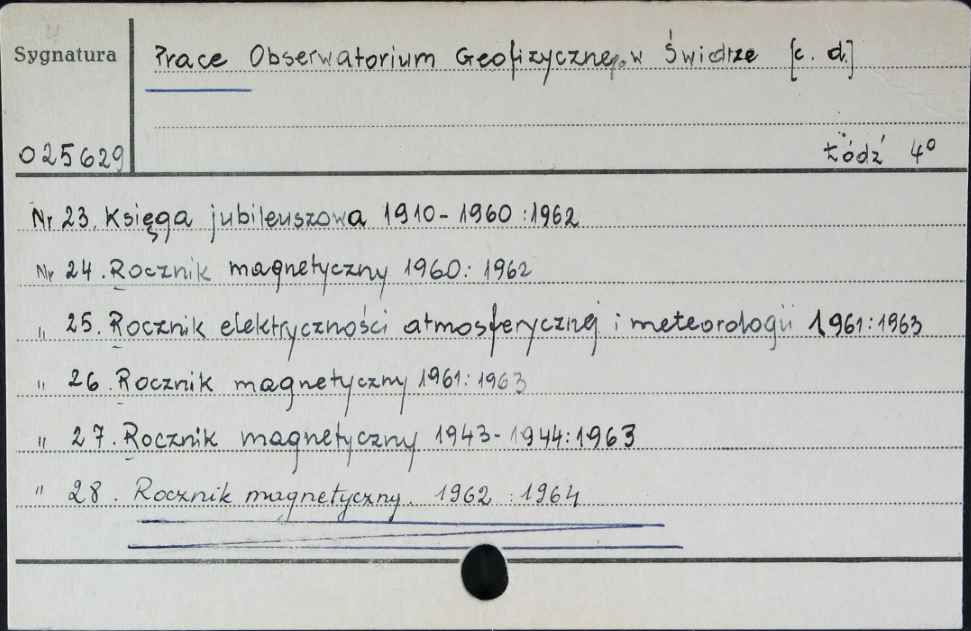 Sygnatura
Prace Obserwatorium Geofizycznego w Świdrze [c. d.]
025629
Łódź 4°
Nr 23. Księga jubileuszowa 1910-1960 : 1962
Nr 24. Rocznik magnetyczny 1960 : 1962
" 25. Rocznik elektryczności atmosferycznej i meteorologii 1961 : 1963
" 26. Rocznik magnetyczny 1961 : 1963
" 27. Rocznik magnetyczny 1943-1944 : 1963
" 28. Rocznik magnetyczny. 1962 : 1964